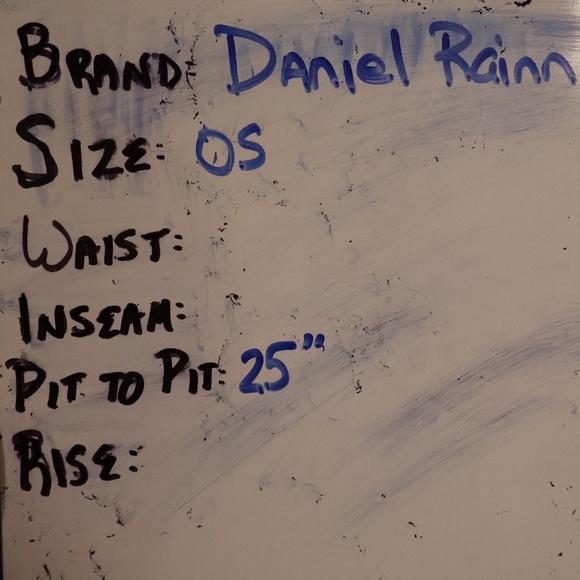 BRAND: Daniel Rainn
SIZE: OS
WAIST:
INSEAM:
PIT TO PIT: 25"
RISE: